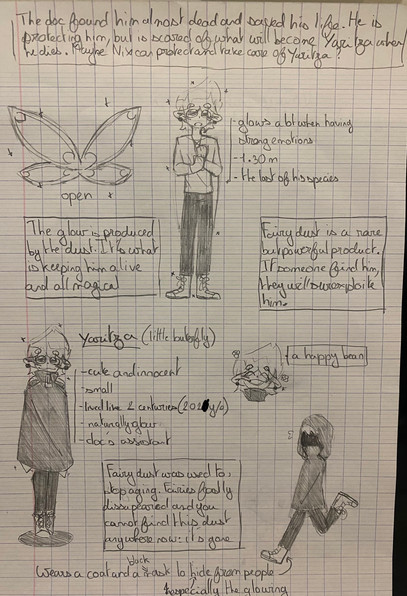 The doc found him almost dead and saved his life. He is
protecting him, but is scared of what will become Yaritza when
he dies. Maybe Nix can protect and take care of Yaritza?
open
- glows a lot when having
strong emotions
- 1.30 m
- the last of his species
The glow is produced
by the dust. It's what
is keeping him alive
and all magical
Fairy dust is a rare
but powerful product.
If someone find him,
they will over exploite
him.
Yaritza (little butterfly)
- cute and innocent
- small
- lived like 2 centuries (201 y/o)
- naturally glow
- doc's assistant
a happy bean
Fairy dust was used to
stop aging. Fairies
disappeared and you
cannot find this dust
anywhere now: it's gone
black
Wears a coat and a mask to hide from people
especially the glowing